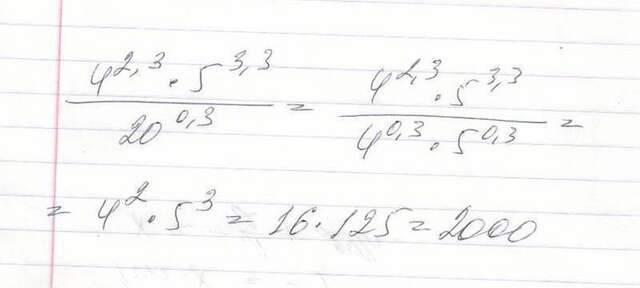 4^2,3 · 5^3,3 / 20^0,3 = 4^2,3 · 5^3,3 / 4^0,3 · 5^0,3 =
= 4^2 · 5^3 = 16 · 125 = 2000